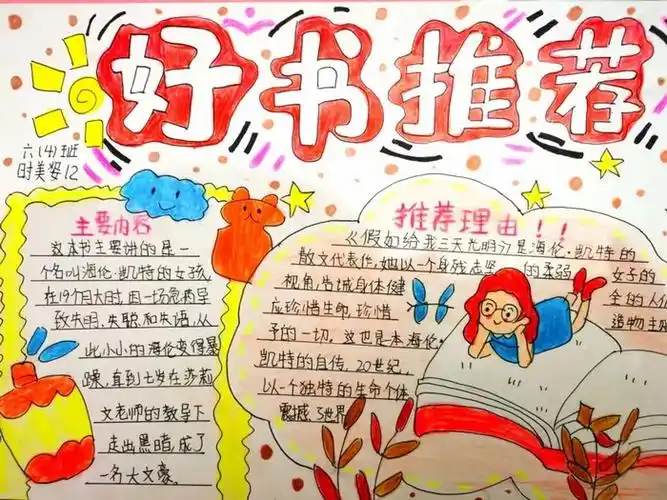 好书推荐
六(4)班
时美姿12
主要内容
这本书主要讲的是一
个名叫海伦·凯特的女孩,
在19个月大时因一场危病导
致失明、失聪、和失语,从
此小小的海伦变得暴
躁,直到七岁在莎莉
文老师的教导下
走出黑暗,成了
一名大文豪。
推荐理由!!
《假如给我三天光明》是海伦·凯特的
散文代表作,她以一个身残志坚 的柔弱 女子的
视角,告诫身体健 全的人们
应珍惜生命,珍惜 造物主
予的一切。这也是本海伦·
凯特的自传,20世纪,
以一个独特的生命个体
震撼了世界